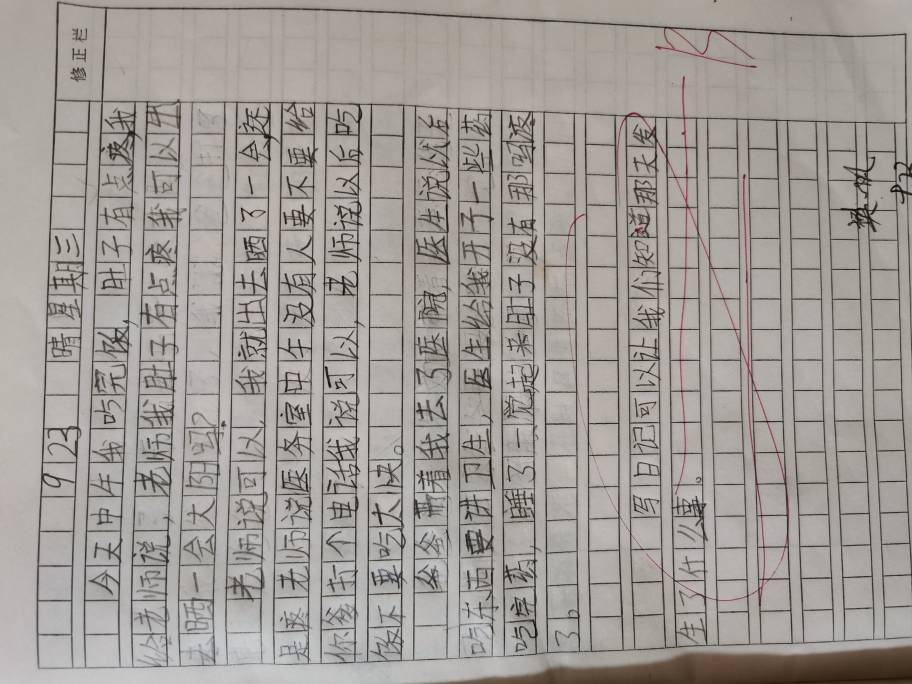 修正栏
9 23 晴 星期三
今天中午我吃完饭，肚子有点疼，我
给老师说，老师我肚子有点疼我可以出
去晒一会太阳吗？
老师说可以，我就出去晒了一会，还
是疼老师说医务室中午没有人要不要给
你爸打个电话我说可以，老师说以后吃
饭不要吃太快。
爸爸带着我去了医院，医生说以后
吃东西要讲卫生，医生给我开了一些药
吃完药，睡了一觉起来肚子没有那吗疼
了。
写日记可以让我们知道那天发
生了什么事。